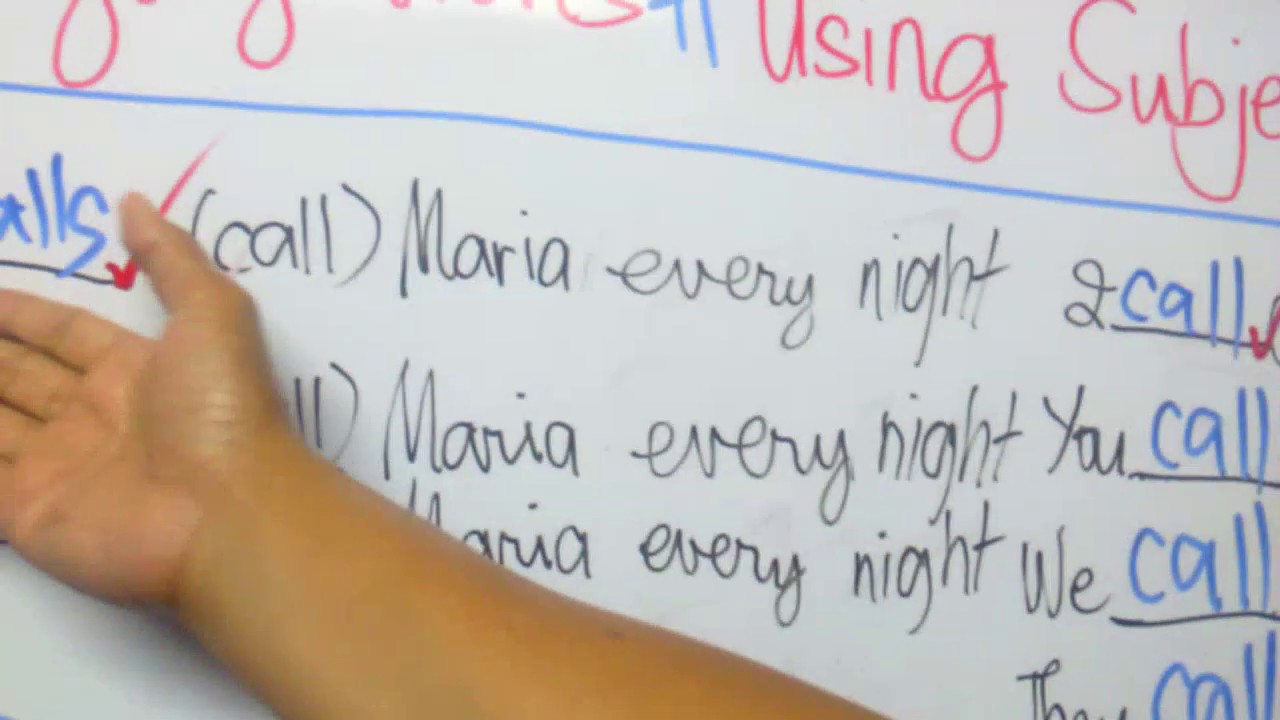 Using
(call) Maria every night I call
Maria every night You call
Maria every night We call
They call